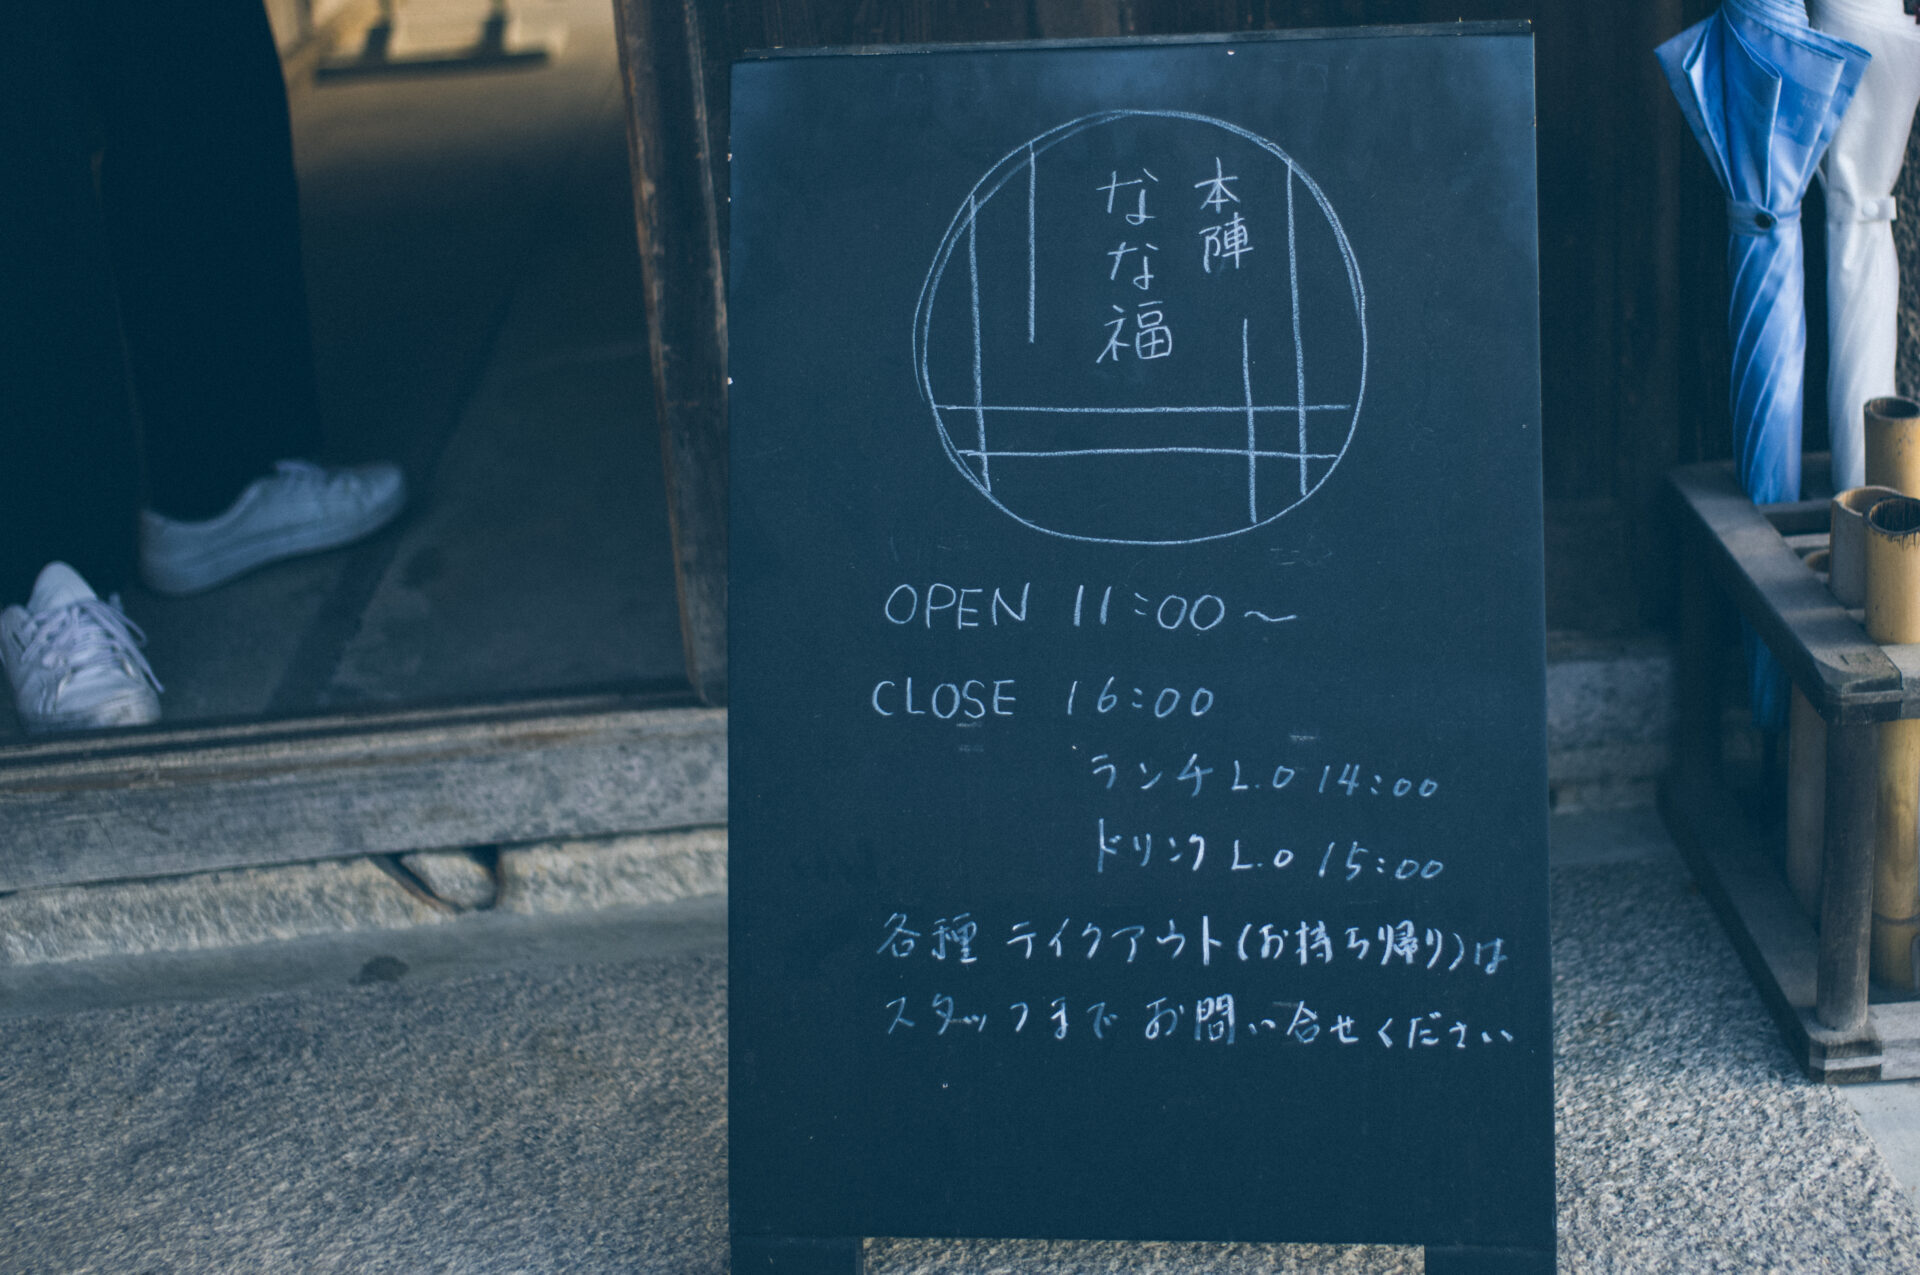 本陣
なな福
OPEN 11:00～
CLOSE 16:00
ランチ L.O 14:00
ドリンク L.O 15:00
各種 テイクアウト(お持ち帰り)は
スタッフまで お問い合せください